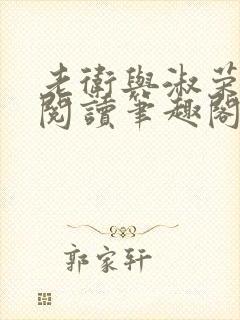 老衛與淑荣
閱讀筆趣閣
郭家轩